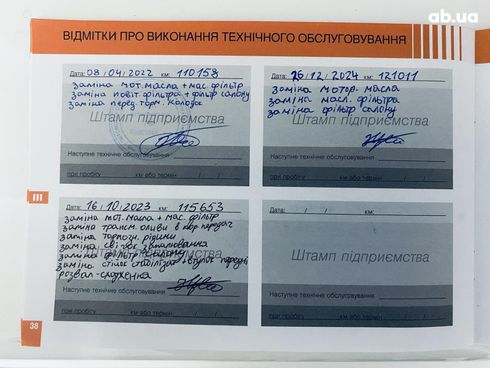 ab.ua
ВІДМІТКИ ПРО ВИКОНАННЯ ТЕХНІЧНОГО ОБСЛУГОВУВАННЯ
Дата: 08/04/2022 км: 110158
заміна мот. масла + мас. фільтр
заміна повіт. фільтра + фільтр салону
заміна перед. торм. колодок
Штамп підприємства
Наступне технічне обслуговування
при пробігу км або термін / /
Дата: 26/12/2024 км: 121011
заміна мотор. масла
заміна масл. фільтра
заміна фільтр салону
Штамп підприємства
Наступне технічне обслуговування
при пробігу км або термін / /
III
Дата: 16/10/2023 км: 115653
заміна мот. масла + мас. фільтр
заміна трансм. оливи в кор передач
заміна тормозн. рідини
заміна свічок запалювання
заміна фільтр салону
заміна стійок стабілізат + втулок передні
розвал-сходження
Штамп підприємства
Наступне технічне обслуговування
при пробігу км або термін / /
Дата: / / км:
Штамп підприємства
Наступне технічне обслуговування
при пробігу км або термін / /
38